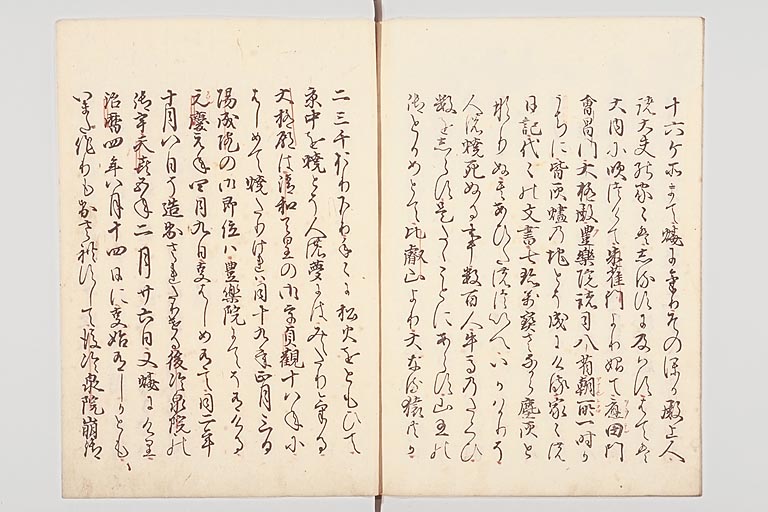 十六ケ所まて焼にけりその外殿上人
諸大夫の家々はしるすに及はすはては
大内に吹つけて朱雀門より始て應田門
會昌門大極殿豊樂院諸司八省朝所一時か
うちに皆灰燼の地とそ成にける家々の
日記代々の文書七珍万寳さなから塵灰と
なりぬ其あひたの つゐへいかはかりそ
人の焼死ぬる事数百人牛馬のたくひ
数をしらす是たゝことにあらす山王の
御とかめとて比叡山より大なる猿ともか
二三千おりくたり手々に松火をともひて
京中を焼とそ人の夢にはみえたりける
大極殿は清和天皇の御宇貞觀十八年に
はしめて焼たりけれは同十九年正月三日
陽成院の御即位は豊樂院にてそありける
元慶元年四月九日事はしめありて同二年
十月八日にそ造出されたりける後冷泉院の
御宇天喜五年二月廿六日又焼にけり
治暦四年八月十四日に事始ありしかとも
いまた作りも出されすして後冷泉院崩御